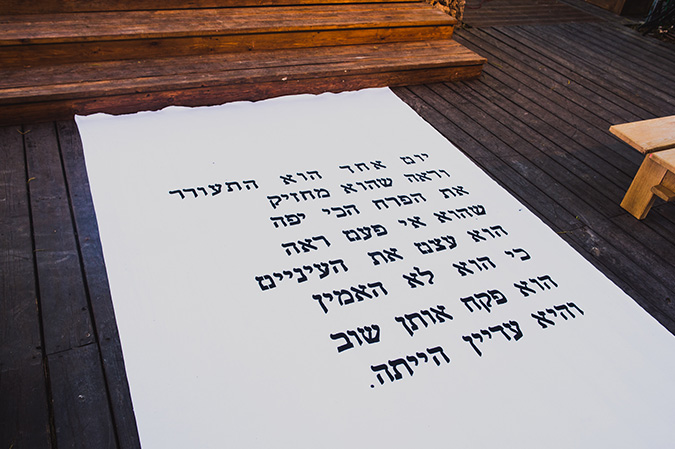 יום אחד הוא התעורר
וראה שהוא מחזיק
את הפרח הכי יפה
שהוא אי פעם ראה
הוא עצם את העיניים
כי הוא לא האמין
הוא פקח אותן שוב
והיא עדיין הייתה.